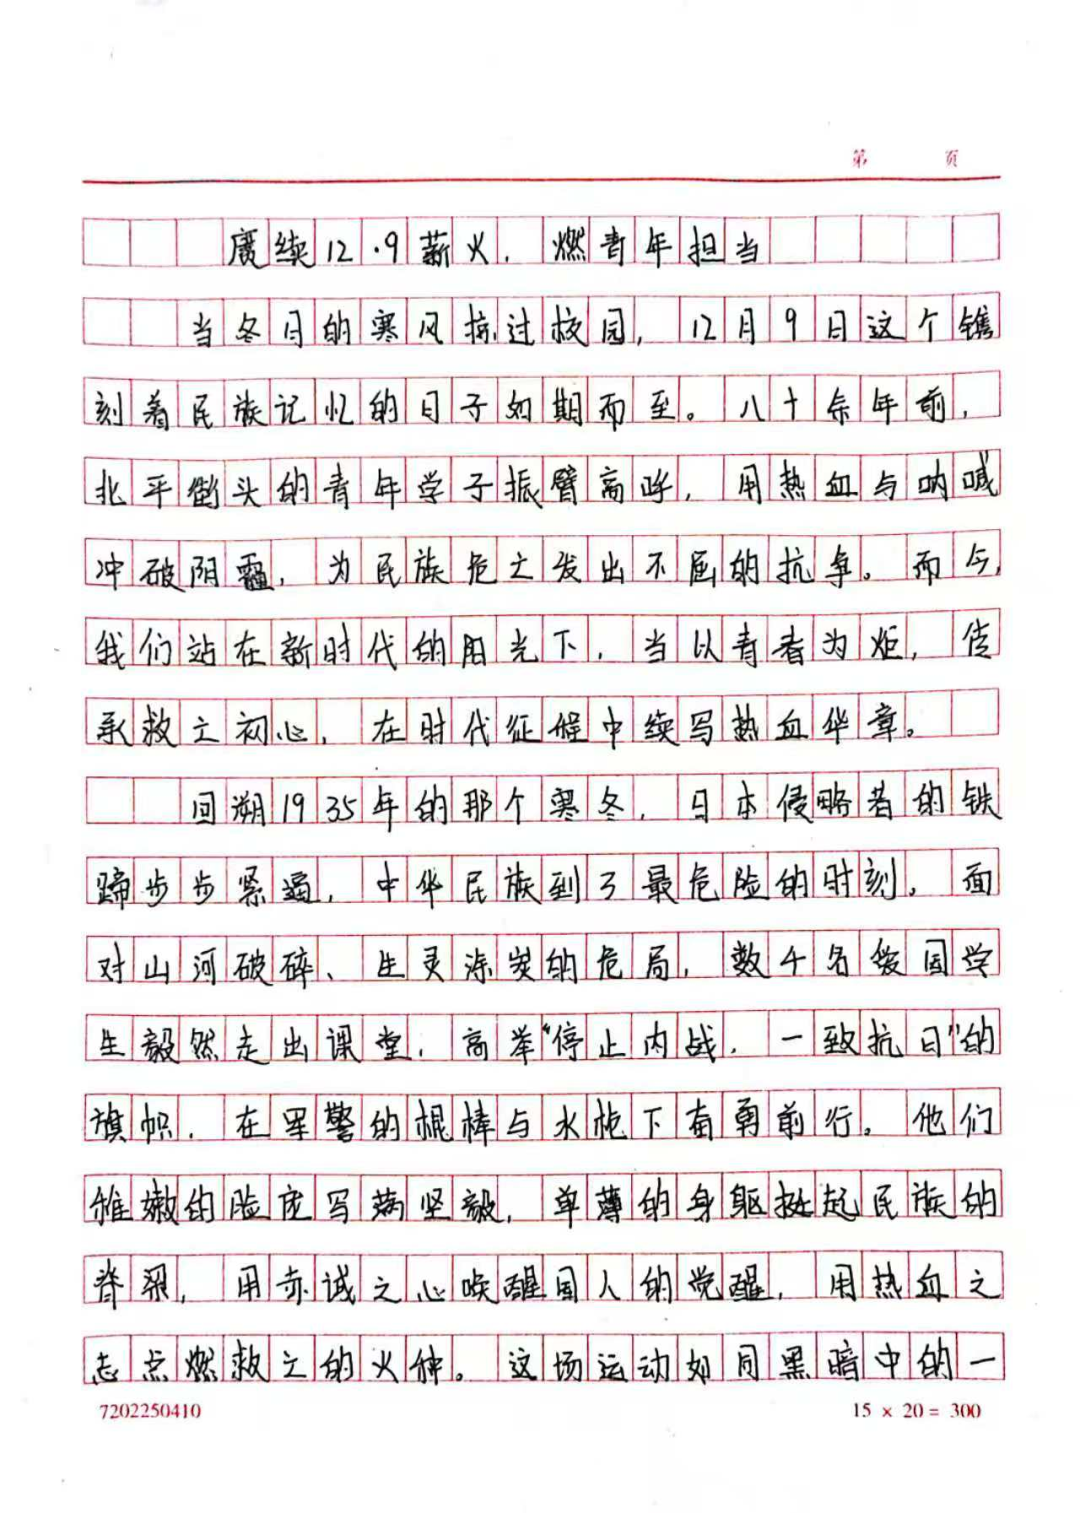 第 页
赓续12.9薪火，燃青年担当
当冬日的寒风掠过校园，12月9日这个镌
刻着民族记忆的日子如期而至。八十余年前，
北平街头的青年学子振臂高呼，用热血与呐喊
冲破阴霾，为民族危亡发出不屈的抗争。而今，
我们站在新时代的阳光下，当以青春为炬，传
承救亡初心，在时代征程中续写热血华章。
回溯1935年的那个寒冬，日本侵略者的铁
蹄步步紧逼，中华民族到了最危险的时刻。面
对山河破碎、生灵涂炭的危局，数千名爱国学
生毅然走出课堂，高举“停止内战，一致抗日”的
旗帜，在军警的棍棒与水枪下奋勇前行。他们
稚嫩的脸庞写满坚毅，单薄的身躯挺起民族的
脊梁，用赤诚之心唤醒国人的觉醒，用热血之
志点燃救亡的火种。这场运动如同黑暗中的一
7202250410 15 × 20 = 300